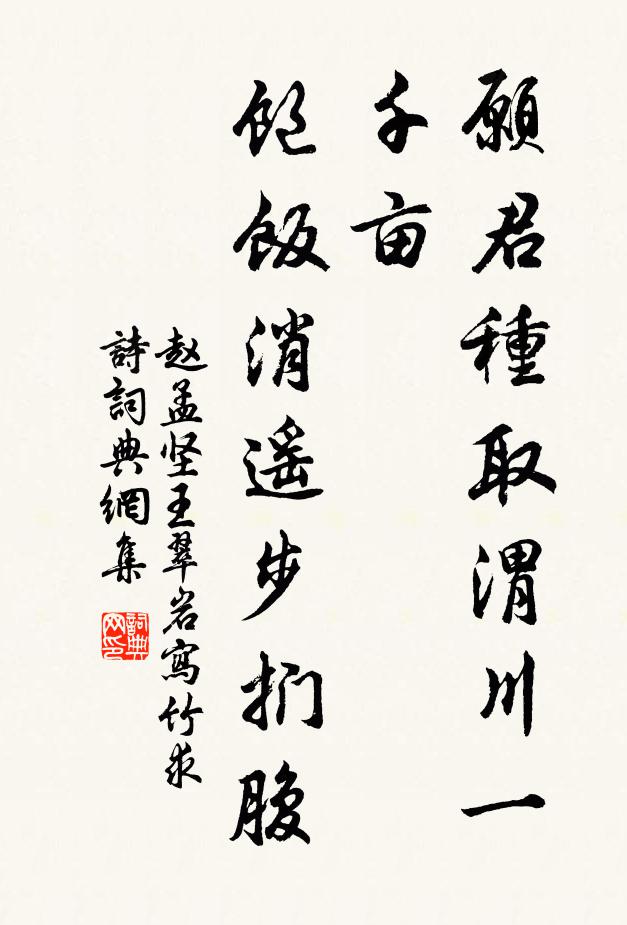 願君種取渭川一
千亩
飽飯消遥步捫腹
赵孟坚王翠岩寫竹求
詩詞典網集
詞典网印